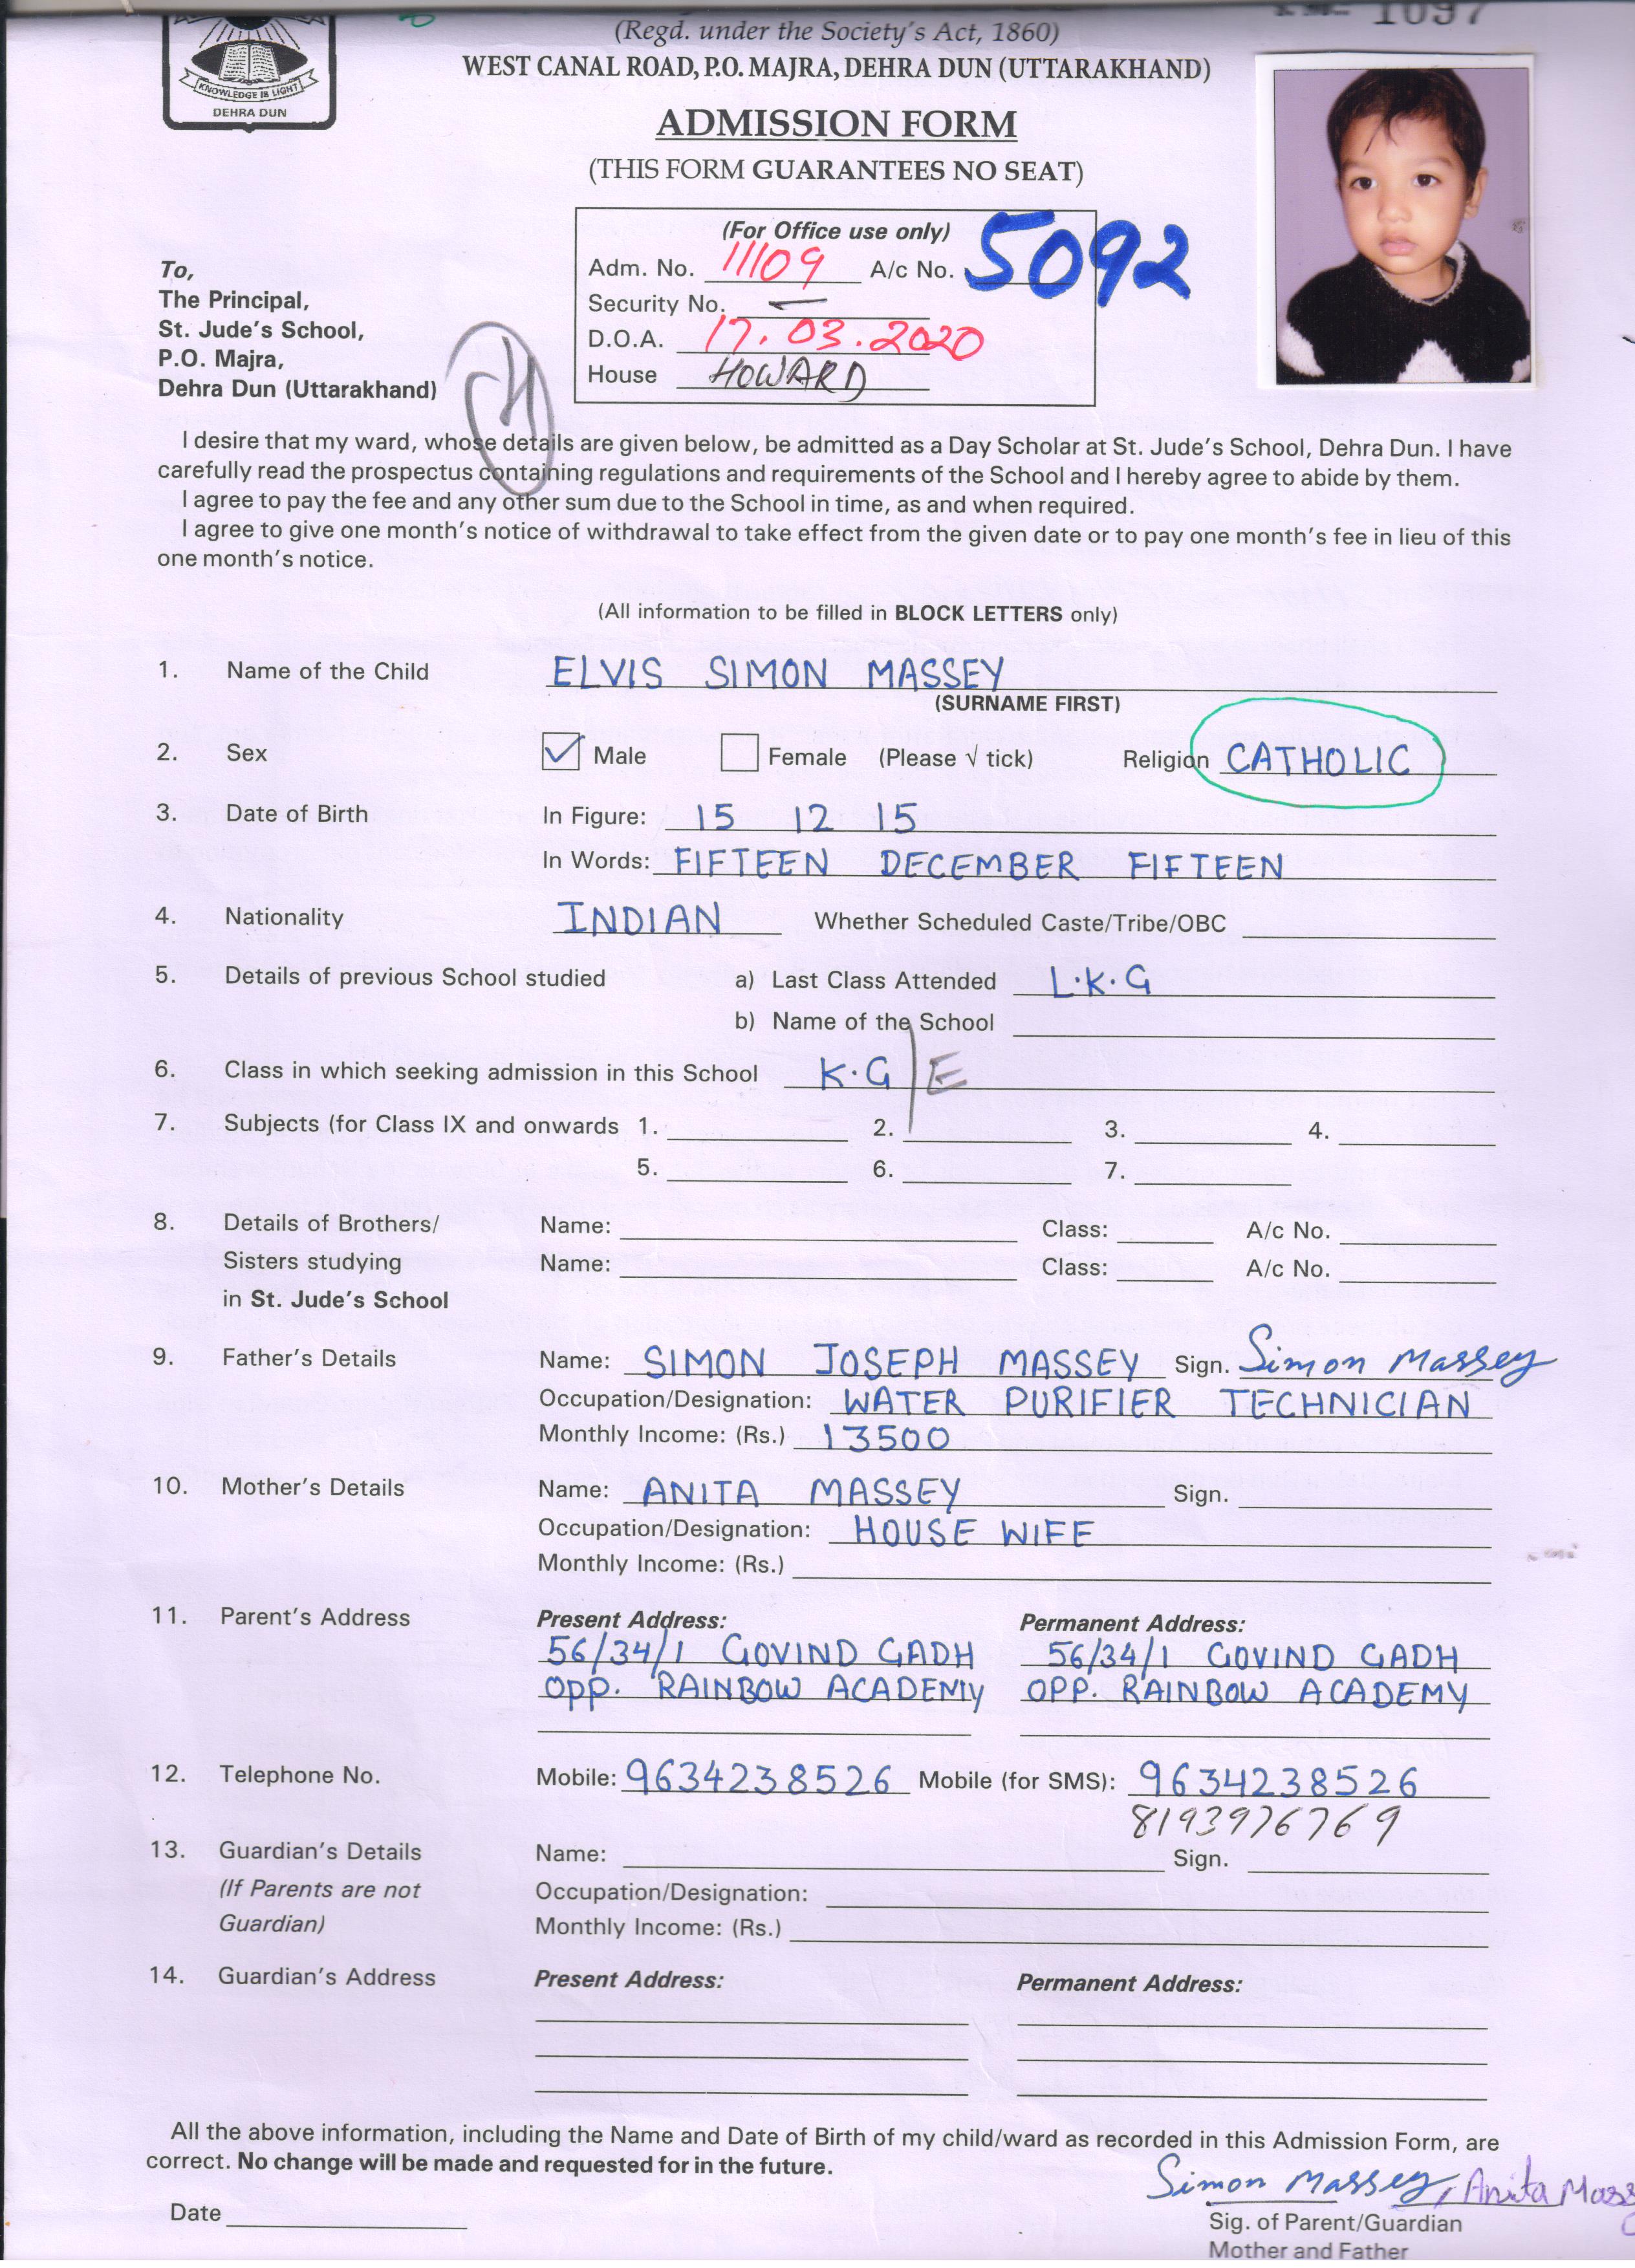 1097
(Regd. under the Society's Act, 1860)
KNOWLEDGE IS LIGHT
DEHRA DUN
WEST CANAL ROAD, P.O. MAJRA, DEHRA DUN (UTTARAKHAND)
ADMISSION FORM
(THIS FORM GUARANTEES NO SEAT)
(For Office use only)
Adm. No. 11109 A/c No. 5092
Security No. —
D.O.A. 17.03.2020
House HOWARD
To,
The Principal,
St. Jude's School,
P.O. Majra,
Dehra Dun (Uttarakhand)
I desire that my ward, whose details are given below, be admitted as a Day Scholar at St. Jude's School, Dehra Dun. I have
carefully read the prospectus containing regulations and requirements of the School and I hereby agree to abide by them.
I agree to pay the fee and any other sum due to the School in time, as and when required.
I agree to give one month's notice of withdrawal to take effect from the given date or to pay one month's fee in lieu of this
one month's notice.
(All information to be filled in BLOCK LETTERS only)
1. Name of the Child ELVIS SIMON MASSEY
(SURNAME FIRST)
2. Sex Male Female (Please √ tick) Religion CATHOLIC
3. Date of Birth In Figure: 15 12 15
In Words: FIFTEEN DECEMBER FIFTEEN
4. Nationality INDIAN Whether Scheduled Caste/Tribe/OBC
5. Details of previous School studied a) Last Class Attended L.K.G
b) Name of the School
6. Class in which seeking admission in this School K.G / E
7. Subjects (for Class IX and onwards 1. 2. 3. 4.
5. 6. 7.
8. Details of Brothers/ Name: Class: A/c No.
Sisters studying Name: Class: A/c No.
in St. Jude's School
9. Father's Details Name: SIMON JOSEPH MASSEY Sign. Simon Massey
Occupation/Designation: WATER PURIFIER TECHNICIAN
Monthly Income: (Rs.) 13500
10. Mother's Details Name: ANITA MASSEY Sign.
Occupation/Designation: HOUSE WIFE
Monthly Income: (Rs.)
11. Parent's Address Present Address: Permanent Address:
56/34/1 GOVIND GADH 56/34/1 GOVIND GADH
OPP. RAINBOW ACADEMY OPP. RAINBOW ACADEMY
12. Telephone No. Mobile: 9634238526 Mobile (for SMS): 9634238526
8193976769
13. Guardian's Details Name: Sign.
(If Parents are not Occupation/Designation:
Guardian) Monthly Income: (Rs.)
14. Guardian's Address Present Address: Permanent Address:
All the above information, including the Name and Date of Birth of my child/ward as recorded in this Admission Form, are
correct. No change will be made and requested for in the future.
Simon Massey, Anita Mass
Date
Sig. of Parent/Guardian
Mother and Father